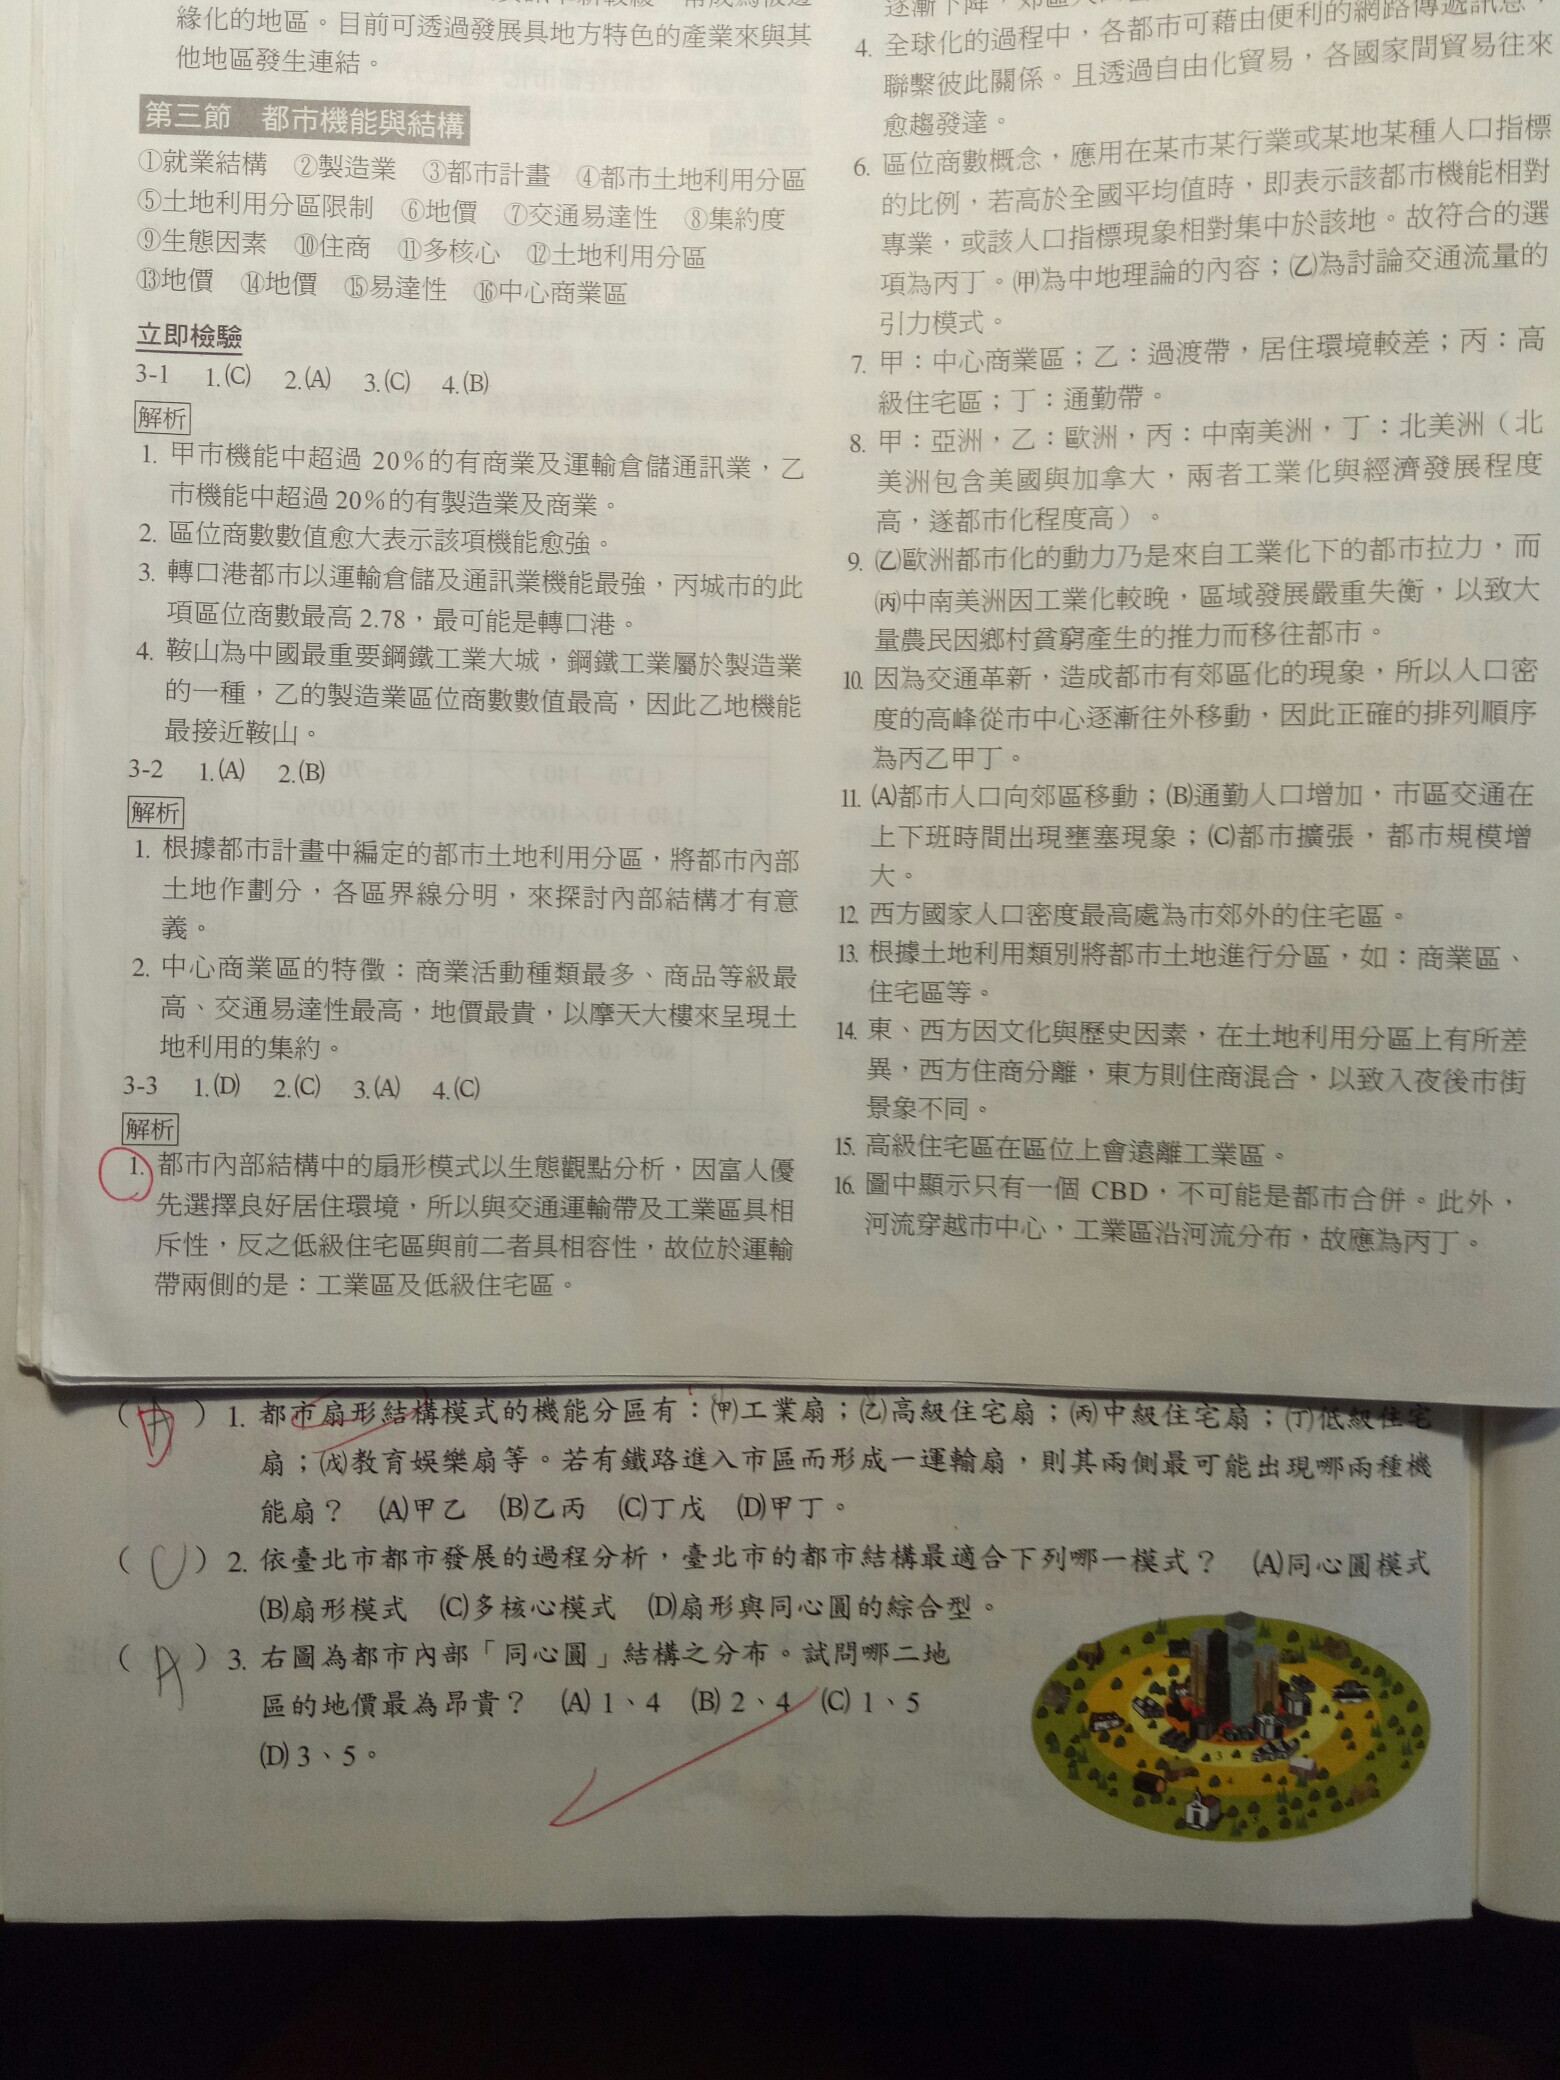 緣化的地區。目前可透過發展具地方特色的產業來與其
他地區發生連結。
第三節 都市機能與結構
①就業結構 ②製造業 ③都市計畫 ④都市土地利用分區
⑤土地利用分區限制 ⑥地價 ⑦交通易達性 ⑧集約度
⑨生態因素 ⑩住商 ⑪多核心 ⑫土地利用分區
⑬地價 ⑭地價 ⑮易達性 ⑯中心商業區
立即檢驗
3-1 1.(C) 2.(A) 3.(C) 4.(B)
解析
1. 甲市機能中超過 20%的有商業及運輸倉儲通訊業，乙
市機能中超過 20%的有製造業及商業。
2. 區位商數數值愈大表示該項機能愈強。
3. 轉口港都市以運輸倉儲及通訊業機能最強，丙城市的此
項區位商數最高 2.78，最可能是轉口港。
4. 鞍山為中國最重要鋼鐵工業大城，鋼鐵工業屬於製造業
的一種，乙的製造業區位商數數值最高，因此乙地機能
最接近鞍山。
3-2 1.(A) 2.(B)
解析
1. 根據都市計畫中編定的都市土地利用分區，將都市內部
土地作劃分，各區界線分明，來探討內部結構才有意
義。
2. 中心商業區的特徵：商業活動種類最多、商品等級最
高、交通易達性最高，地價最貴，以摩天大樓來呈現土
地利用的集約。
3-3 1.(D) 2.(C) 3.(A) 4.(C)
解析
1. 都市內部結構中的扇形模式以生態觀點分析，因富人優
先選擇良好居住環境，所以與交通運輸帶及工業區具相
斥性，反之低級住宅區與前二者具相容性，故位於運輸
帶兩側的是：工業區及低級住宅區。
4. 全球化的過程中，各都市可藉由便利的網路傳遞訊息，
聯繫彼此關係。且透過自由化貿易，各國家間貿易往來
愈趨發達。
6. 區位商數概念，應用在某市某行業或某地某種人口指標
的比例，若高於全國平均值時，即表示該都市機能相對
專業，或該人口指標現象相對集中於該地。故符合的選
項為丙丁。(甲)為中地理論的內容；(乙)為討論交通流量的
引力模式。
7. 甲：中心商業區；乙：過渡帶，居住環境較差；丙：高
級住宅區；丁：通勤帶。
8. 甲：亞洲，乙：歐洲，丙：中南美洲，丁：北美洲（北
美洲包含美國與加拿大，兩者工業化與經濟發展程度
高，遂都市化程度高）。
9. (乙)歐洲都市化的動力乃是來自工業化下的都市拉力，而
(丙)中南美洲因工業化較晚，區域發展嚴重失衡，以致大
量農民因鄉村貧窮產生的推力而移往都市。
10. 因為交通革新，造成都市有郊區化的現象，所以人口密
度的高峰從市中心逐漸往外移動，因此正確的排列順序
為丙乙甲丁。
11. (A)都市人口向郊區移動；(B)通勤人口增加，市區交通在
上下班時間出現壅塞現象；(C)都市擴張，都市規模增
大。
12. 西方國家人口密度最高處為市郊外的住宅區。
13. 根據土地利用類別將都市土地進行分區，如：商業區、
住宅區等。
14. 東、西方因文化與歷史因素，在土地利用分區上有所差
異，西方住商分離，東方則住商混合，以致入夜後市街
景象不同。
15. 高級住宅區在區位上會遠離工業區。
16. 圖中顯示只有一個 CBD，不可能是都市合併。此外，
河流穿越市中心，工業區沿河流分布，故應為丙丁。
( D ) 1. 都市扇形結構模式的機能分區有：(甲)工業扇；(乙)高級住宅扇；(丙)中級住宅扇；(丁)低級住宅
扇；(戊)教育娛樂扇等。若有鐵路進入市區而形成一運輸扇，則其兩側最可能出現哪兩種機
能扇？ (A)甲乙 (B)乙丙 (C)丁戊 (D)甲丁。
( C ) 2. 依臺北市都市發展的過程分析，臺北市的都市結構最適合下列哪一模式？ (A)同心圓模式
(B)扇形模式 (C)多核心模式 (D)扇形與同心圓的綜合型。
( A ) 3. 右圖為都市內部「同心圓」結構之分布。試問哪二地
區的地價最為昂貴？ (A) 1、4 (B) 2、4 (C) 1、5
(D) 3、5。